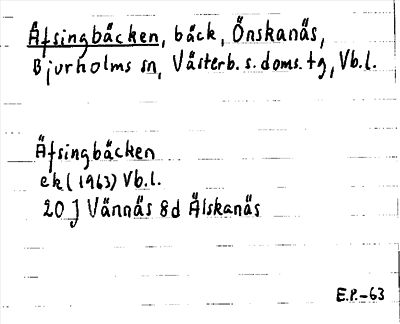 Äfsingbäcken, bäck, Önskanäs,
Bjurholms sn, Västerb. s. doms. tg, Vb.l.
Äfsingbäcken
ek (1963) Vb.l.
20 J Vännäs 8d Älskanäs
E.P.-63